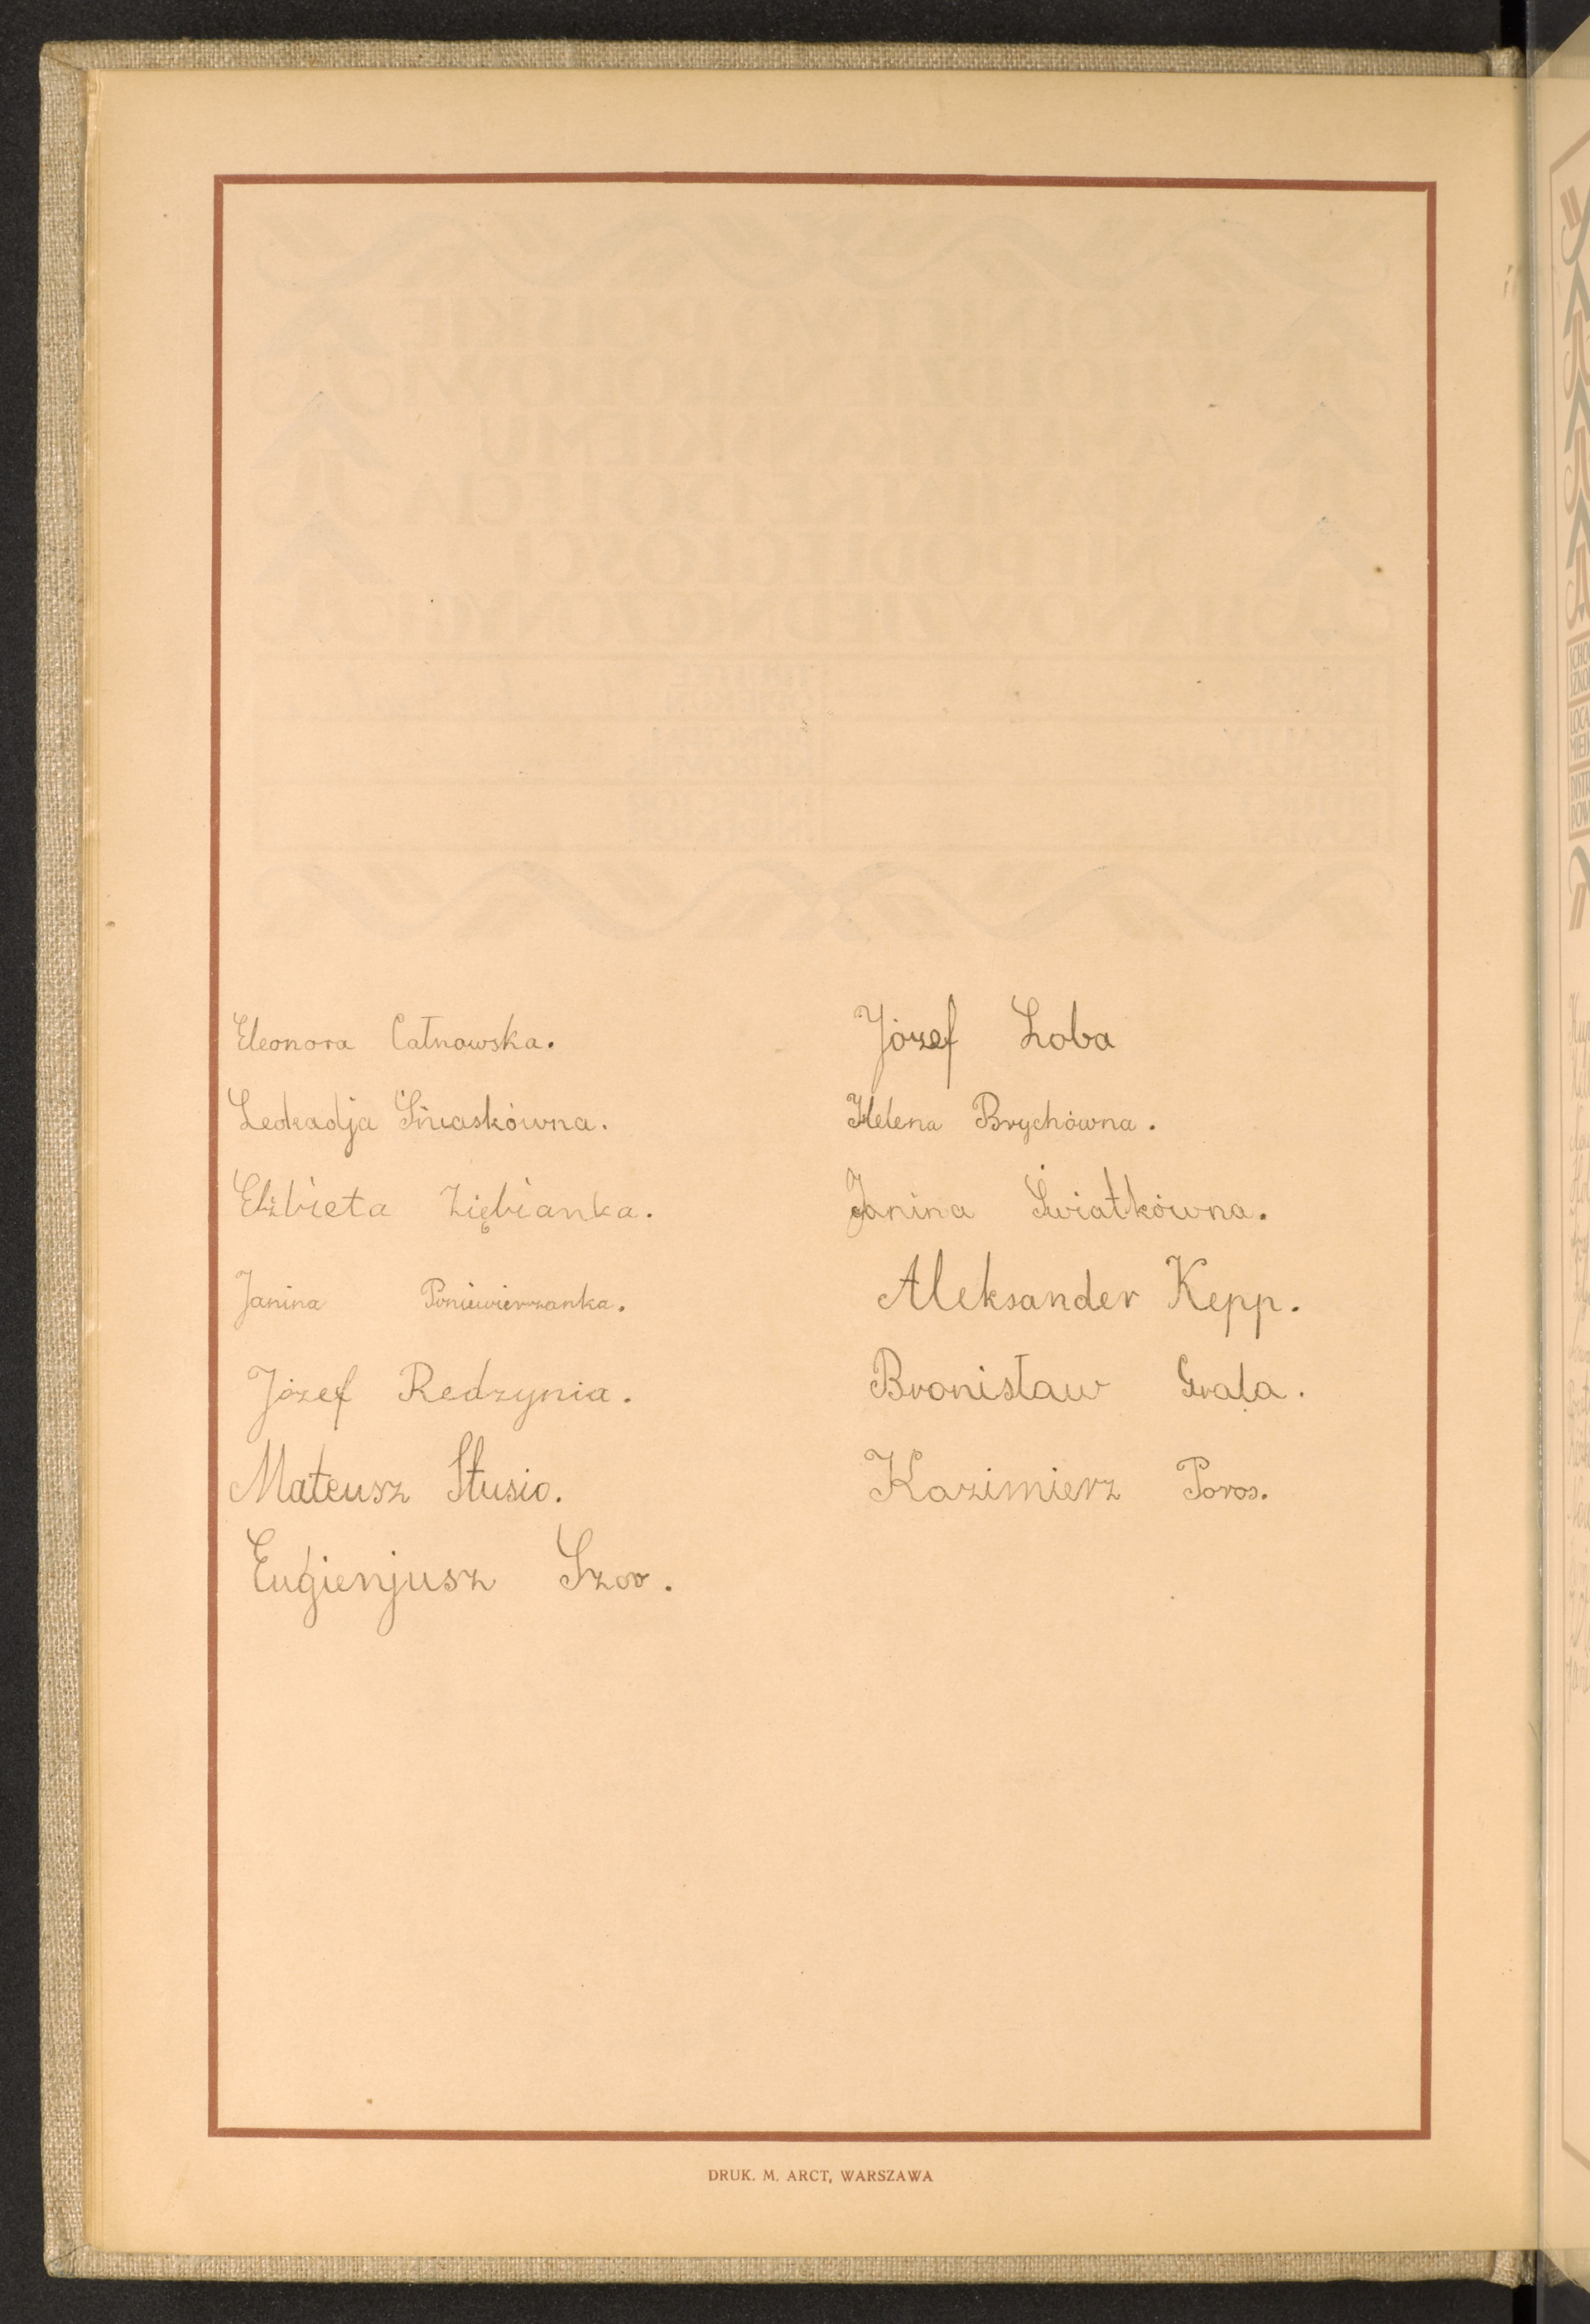 Eleonora Całnowska.
Leokadja Śniaskówna.
Elżbieta Ziębianka.
Janina Poniewierzanka.
Józef Redzynia.
Mateusz Stusio.
Eugienjusz Szor.
Józef Loba
Helena Brychówna.
Janina Światkówna.
Aleksander Kepp.
Bronisław Grala.
Kazimierz Poros.
DRUK. M. ARCT, WARSZAWA